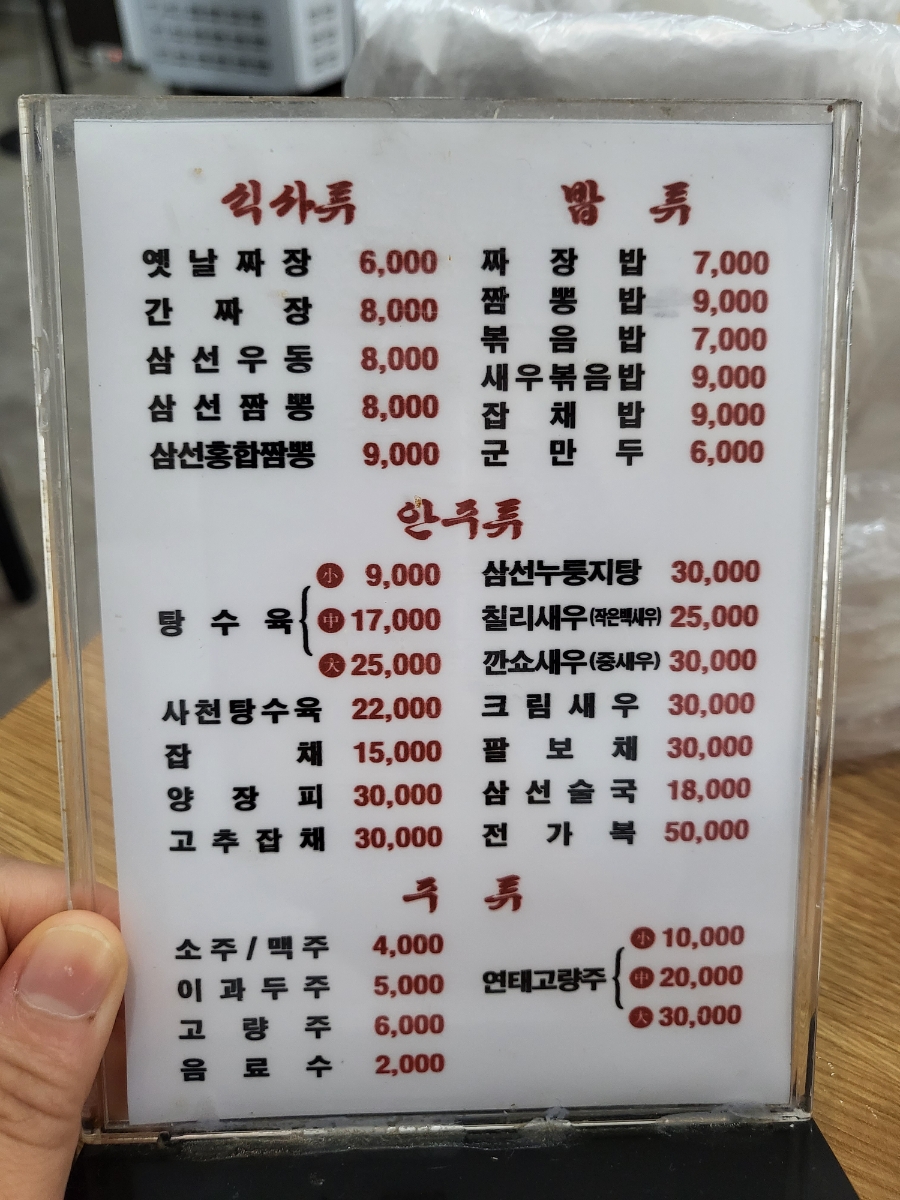 식사류
옛날짜장 6,000
간짜장 8,000
삼선우동 8,000
삼선짬뽕 8,000
삼선홍합짬뽕 9,000
밥류
짜장밥 7,000
짬뽕밥 9,000
볶음밥 7,000
새우볶음밥 9,000
잡채밥 9,000
군만두 6,000
안주류
탕수육
小 9,000
中 17,000
大 25,000
사천탕수육 22,000
잡채 15,000
양장피 30,000
고추잡채 30,000
삼선누룽지탕 30,000
칠리새우(작은백새우) 25,000
깐쇼새우(중새우) 30,000
크림새우 30,000
팔보채 30,000
삼선술국 18,000
전가복 50,000
주류
소주/맥주 4,000
이과두주 5,000
고량주 6,000
음료수 2,000
연태고량주
小 10,000
中 20,000
大 30,000